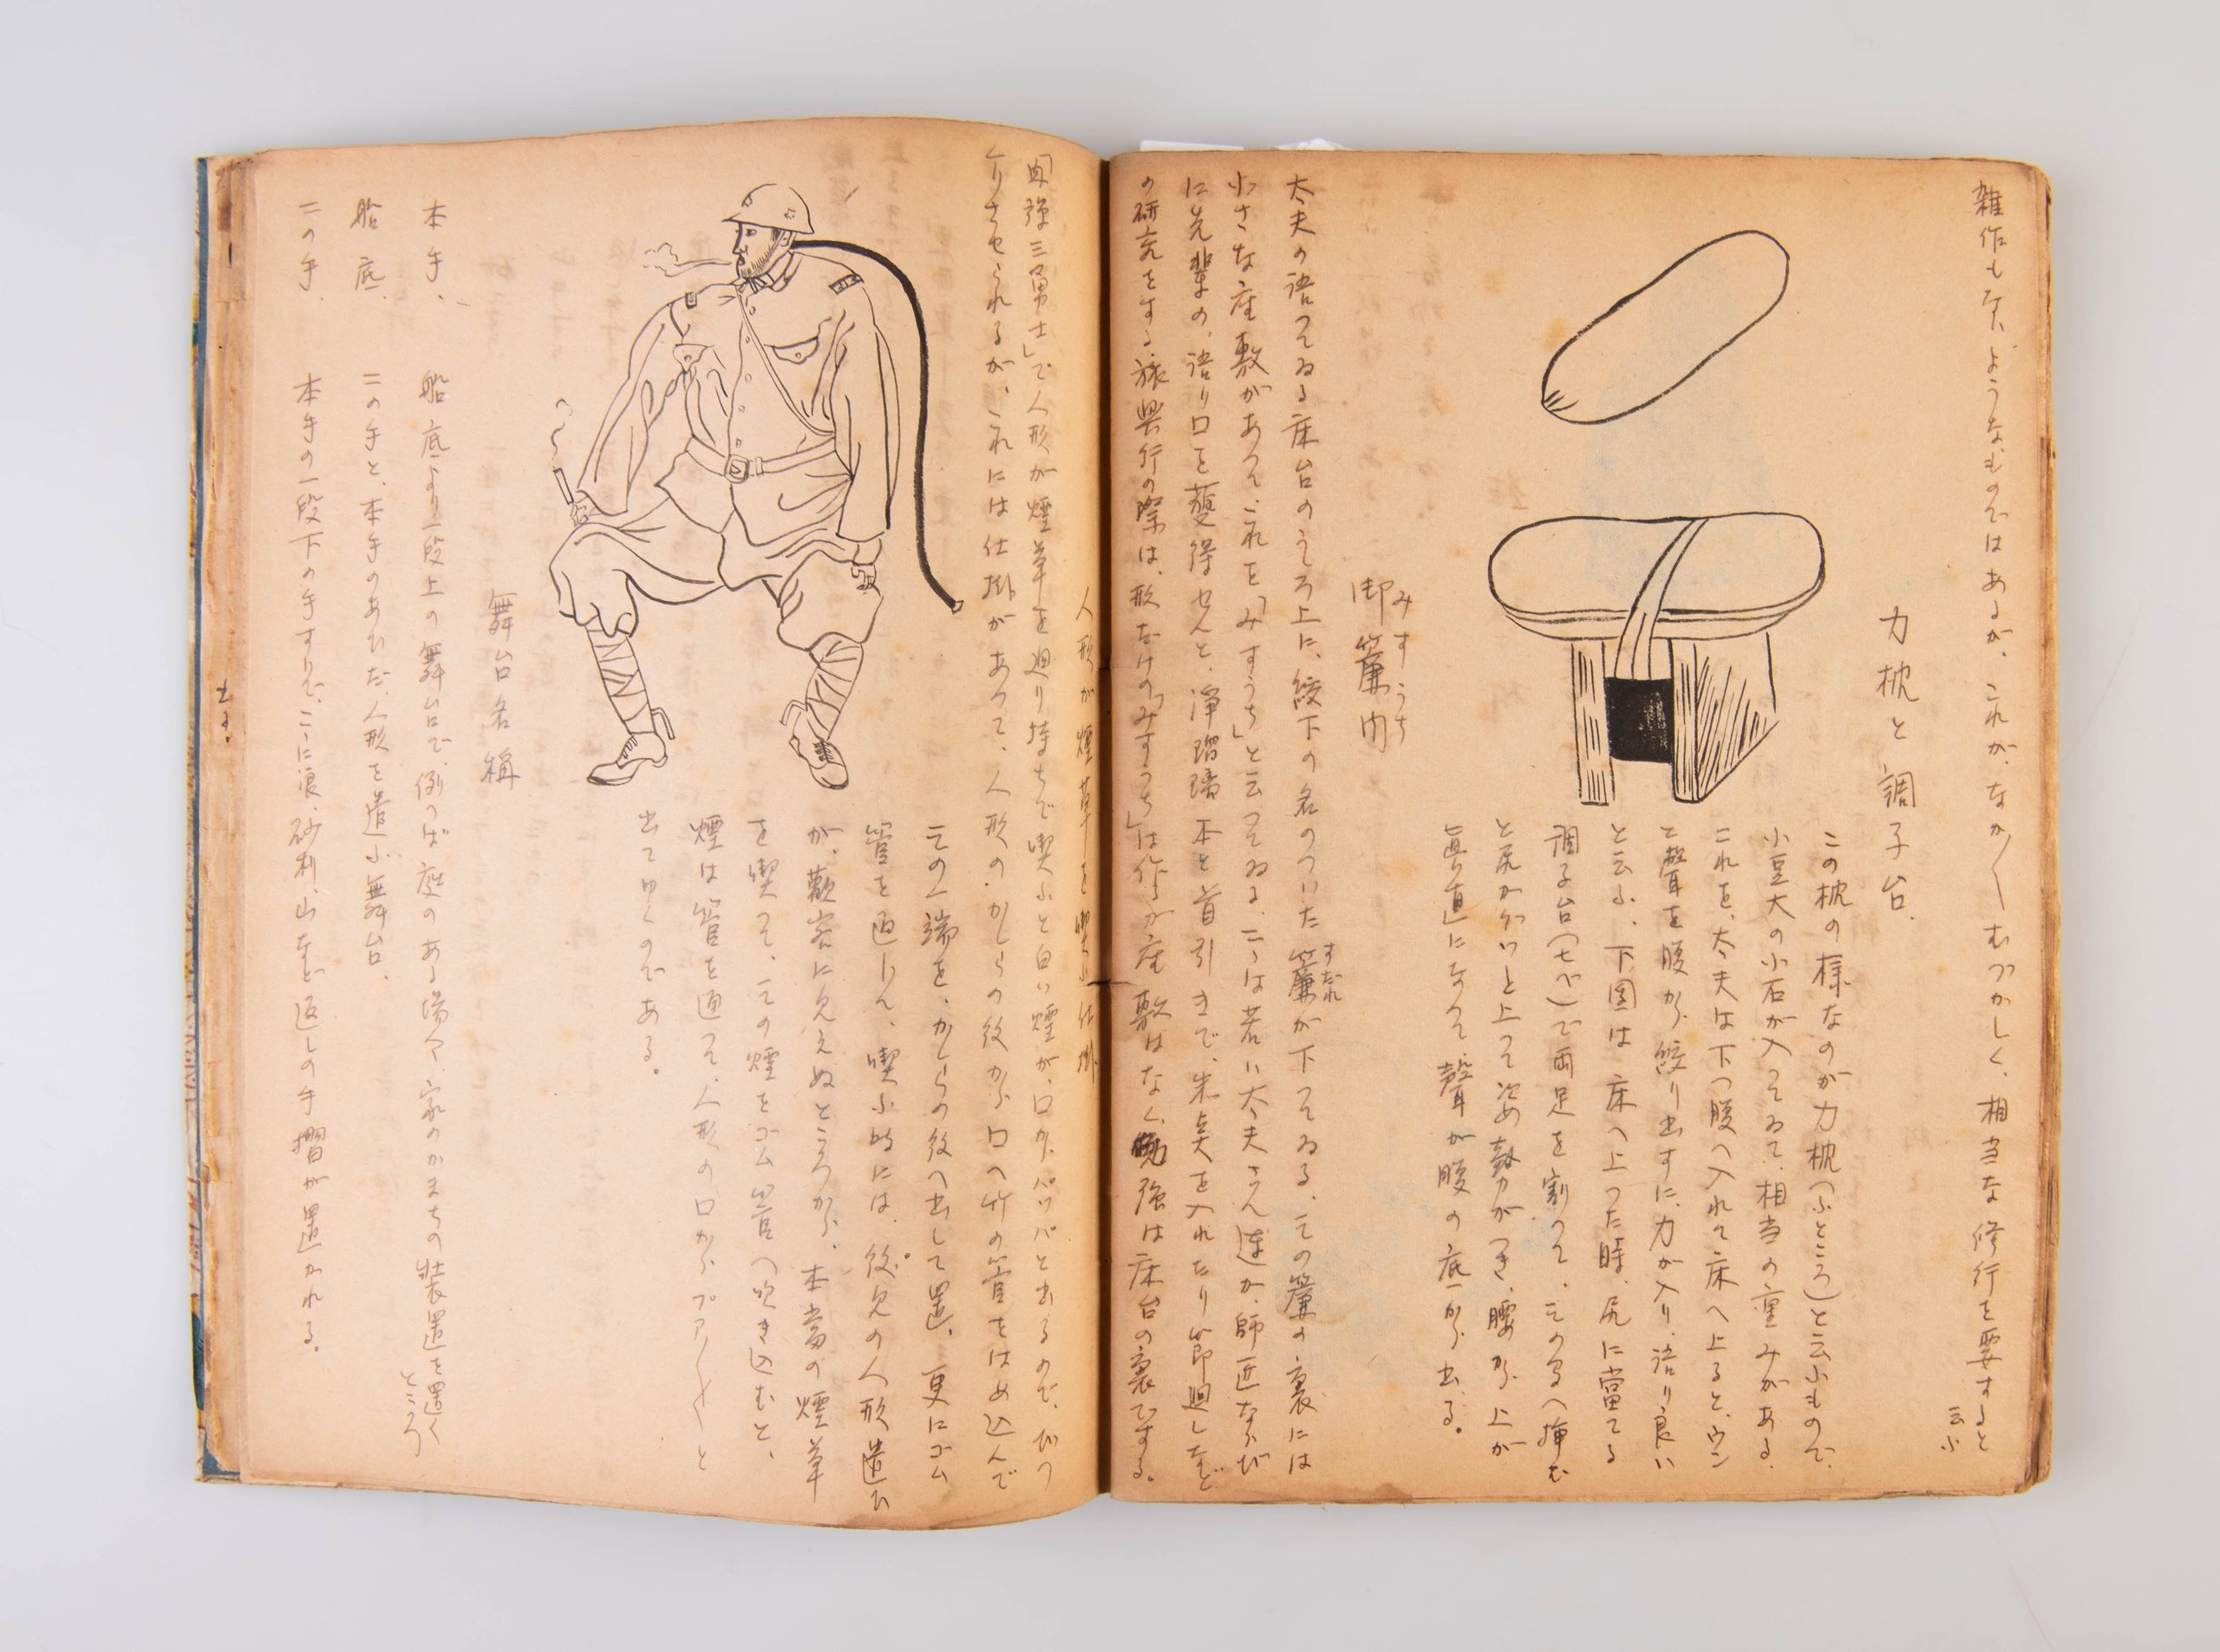 雑作もないようなものではあるが、これが、なか〳〵むつかしく、相当な修行を要すると
云ふ
力枕と調子台。
この枕の様なのが力枕(ふところ)と云ふもので、
小豆大の小石が入つてゐて、相当の重みがある。
これを、太夫は下つ腹へ入れて床へ上ると、ウン
と聲を腹から絞り出すに、力が入り、語り良い
と云ふ、下図は床へ上つた時、尻に當てる
調子台(セベ)で両足を割つて、その間へ挿む
と尻がグイと上つて姿勢がつき、腰から上が
真直になつて、聲が腹の底から出る。
みすうち
御簾内
太夫の語つてゐる床台のうしろ上に、絞下の名のついた簾が下つてゐる、その簾の裏には
すだれ
小さな座敷があつて、これを「みすうち」と云つてゐる、こゝは若い太夫さん達が、師匠ならび
に先輩の、語り口を獲得せんと、浄瑠璃本と首引きで、朱点を入れたり節廻しなど
の研究をする、旅興行の際は、形だけの「みすうち」は作るが座敷はなく、勉強は床台の裏でする。
人形が煙草を喫ふ仕掛
「肉弾三勇士」で人形が煙草を廻り持ちで喫ふと白い煙が、口から、パッパと出るので、びつ
くりさせられるが、これには仕掛があつて、人形の、かしらの後から口へ竹の管をはめ込んで
その一端を、かしらの後へ出して置、更にゴム
管を通して、喫ふ時には、後見の人形遣ひ
が、観客に見えぬところから、本當の煙草
を喫つて、その煙をゴム管へ吹き込むと、
煙は管を通つて、人形の口から、プア〳〵と
出てゆくのである。
舞台名稱
本手、 船底より一段上の舞台で、例へば庭のある場合、家のかまちの装置を置く
ところ
船底、 二の手と、本手のあひだ、人形を遣ふ舞台、
二の手、 本手の一段下の手すりで、こゝに浪、砂利、山など返しの手摺が置かれる。